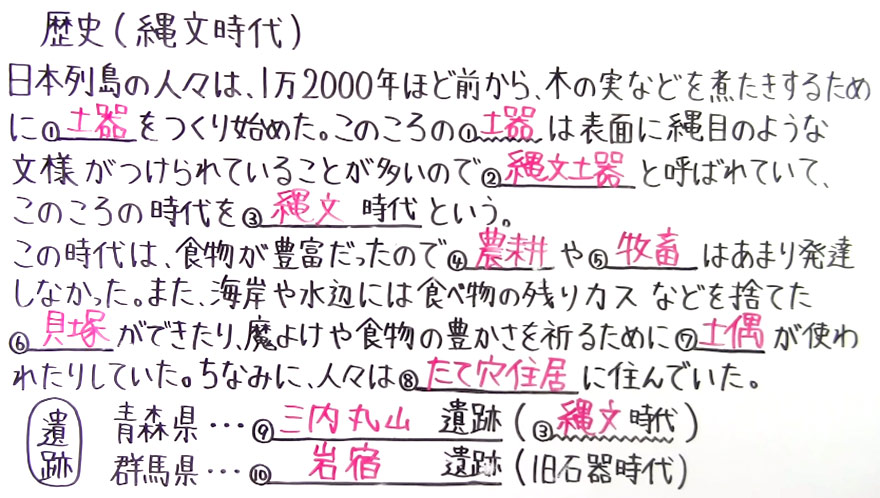 歴史(縄文時代)
日本列島の人々は、1万2000年ほど前から、木の実などを煮たきするため
に①土器をつくり始めた。このころの①土器は表面に縄目のような
文様がつけられていることが多いので②縄文土器と呼ばれていて、
このころの時代を③縄文時代という。
この時代は、食物が豊富だったので④農耕や⑤牧畜はあまり発達
しなかった。また、海岸や水辺には食べ物の残りカスなどを捨てた
⑥貝塚ができたり、魔よけや食物の豊かさを祈るために⑦土偶が使わ
れたりしていた。ちなみに、人々は⑧たて穴住居に住んでいた。
遺跡 青森県…⑨三内丸山 遺跡(③縄文時代)
群馬県…⑩岩宿 遺跡(旧石器時代)